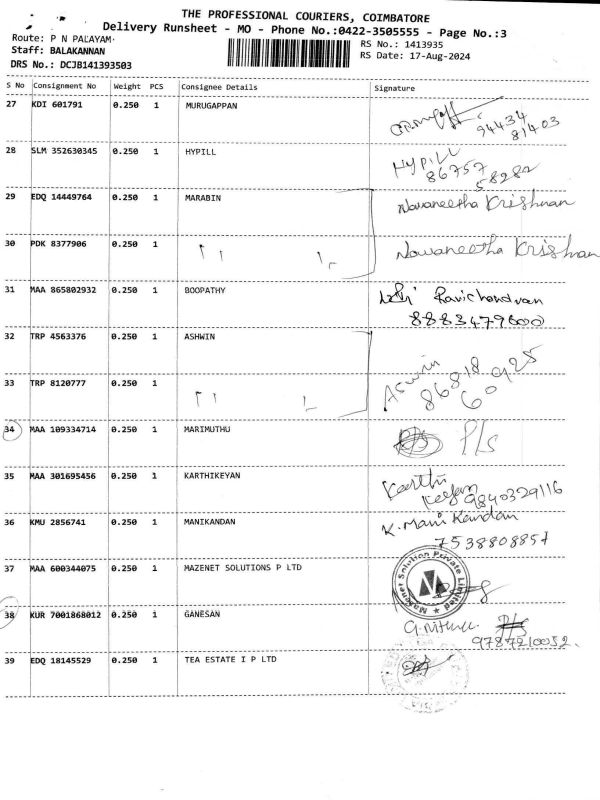 THE PROFESSIONAL COURIERS, COIMBATORE
Delivery Runsheet - MO - Phone No.:0422-3505555 - Page No.:3
Route: P N PALAYAM
Staff: BALAKANNAN
DRS No.: DCJB141393503
RS No.: 1413935
RS Date: 17-Aug-2024
S No Consignment No Weight PCS Consignee Details Signature
27 KDI 601791 0.250 1 MURUGAPPAN
94434
81403
28 SLM 352630345 0.250 1 HYPILL
HYPILL
86757
58282
29 EDQ 14449764 0.250 1 MARABIN Navaneetha Krishnan
30 PDK 8377906 0.250 1 Navaneetha Krishnan
31 MAA 865802932 0.250 1 BOOPATHY Ravichandran
8883479600
32 TRP 4563376 0.250 1 ASHWIN
Aswin
86818 925
60
33 TRP 8120777 0.250 1
34 MAA 109334714 0.250 1 MARIMUTHU P/s
35 MAA 301695456 0.250 1 KARTHIKEYAN Karthi
Keyan 9840329116
36 KMU 2856741 0.250 1 MANIKANDAN K. Mani Kandan
7538808857
37 MAA 600344075 0.250 1 MAZENET SOLUTIONS P LTD
Mazenet Solution Private Limited
38 KUR 7001868012 0.250 1 GANESAN P/s
9787210052.
39 EDQ 18145529 0.250 1 TEA ESTATE I P LTD